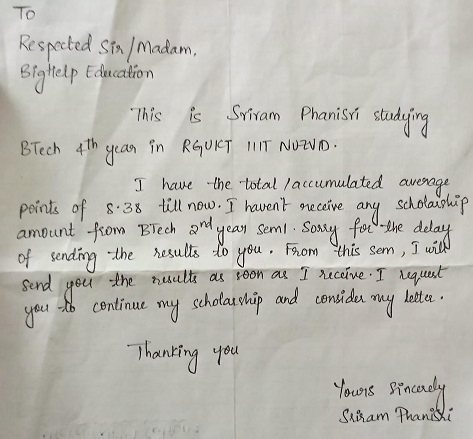 To
Respected Sir/Madam,
BigHelp Education
This is Sriram PhaniSri studying
BTech 4th year in RGUKT IIIT NUZVID.
I have the total/accumulated average
points of 8.38 till now. I haven't receive any scholarship
amount from BTech 2nd year sem1. Sorry for the delay
of sending the results to you. From this sem, I will
send you the results as soon as I receive. I request
you to continue my scholarship and consider my letter.
Thanking you
Yours Sincerely
Sriram PhaniSri